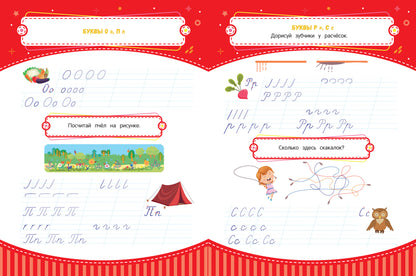 БУКВЫ О о, П п
О О О О
Оо о о о о
Оо Оо Оо
Посчитай пчёл на рисунке.
П П П П П
Пп
Пп Пп Пп
БУКВЫ Р р, С с
Дорисуй зубчики у расчёсок.
Р Р Р Р
р р р р Рр Рр
Сколько здесь скакалок?
С С С С
с с с с Сс
Сс Сс Сс